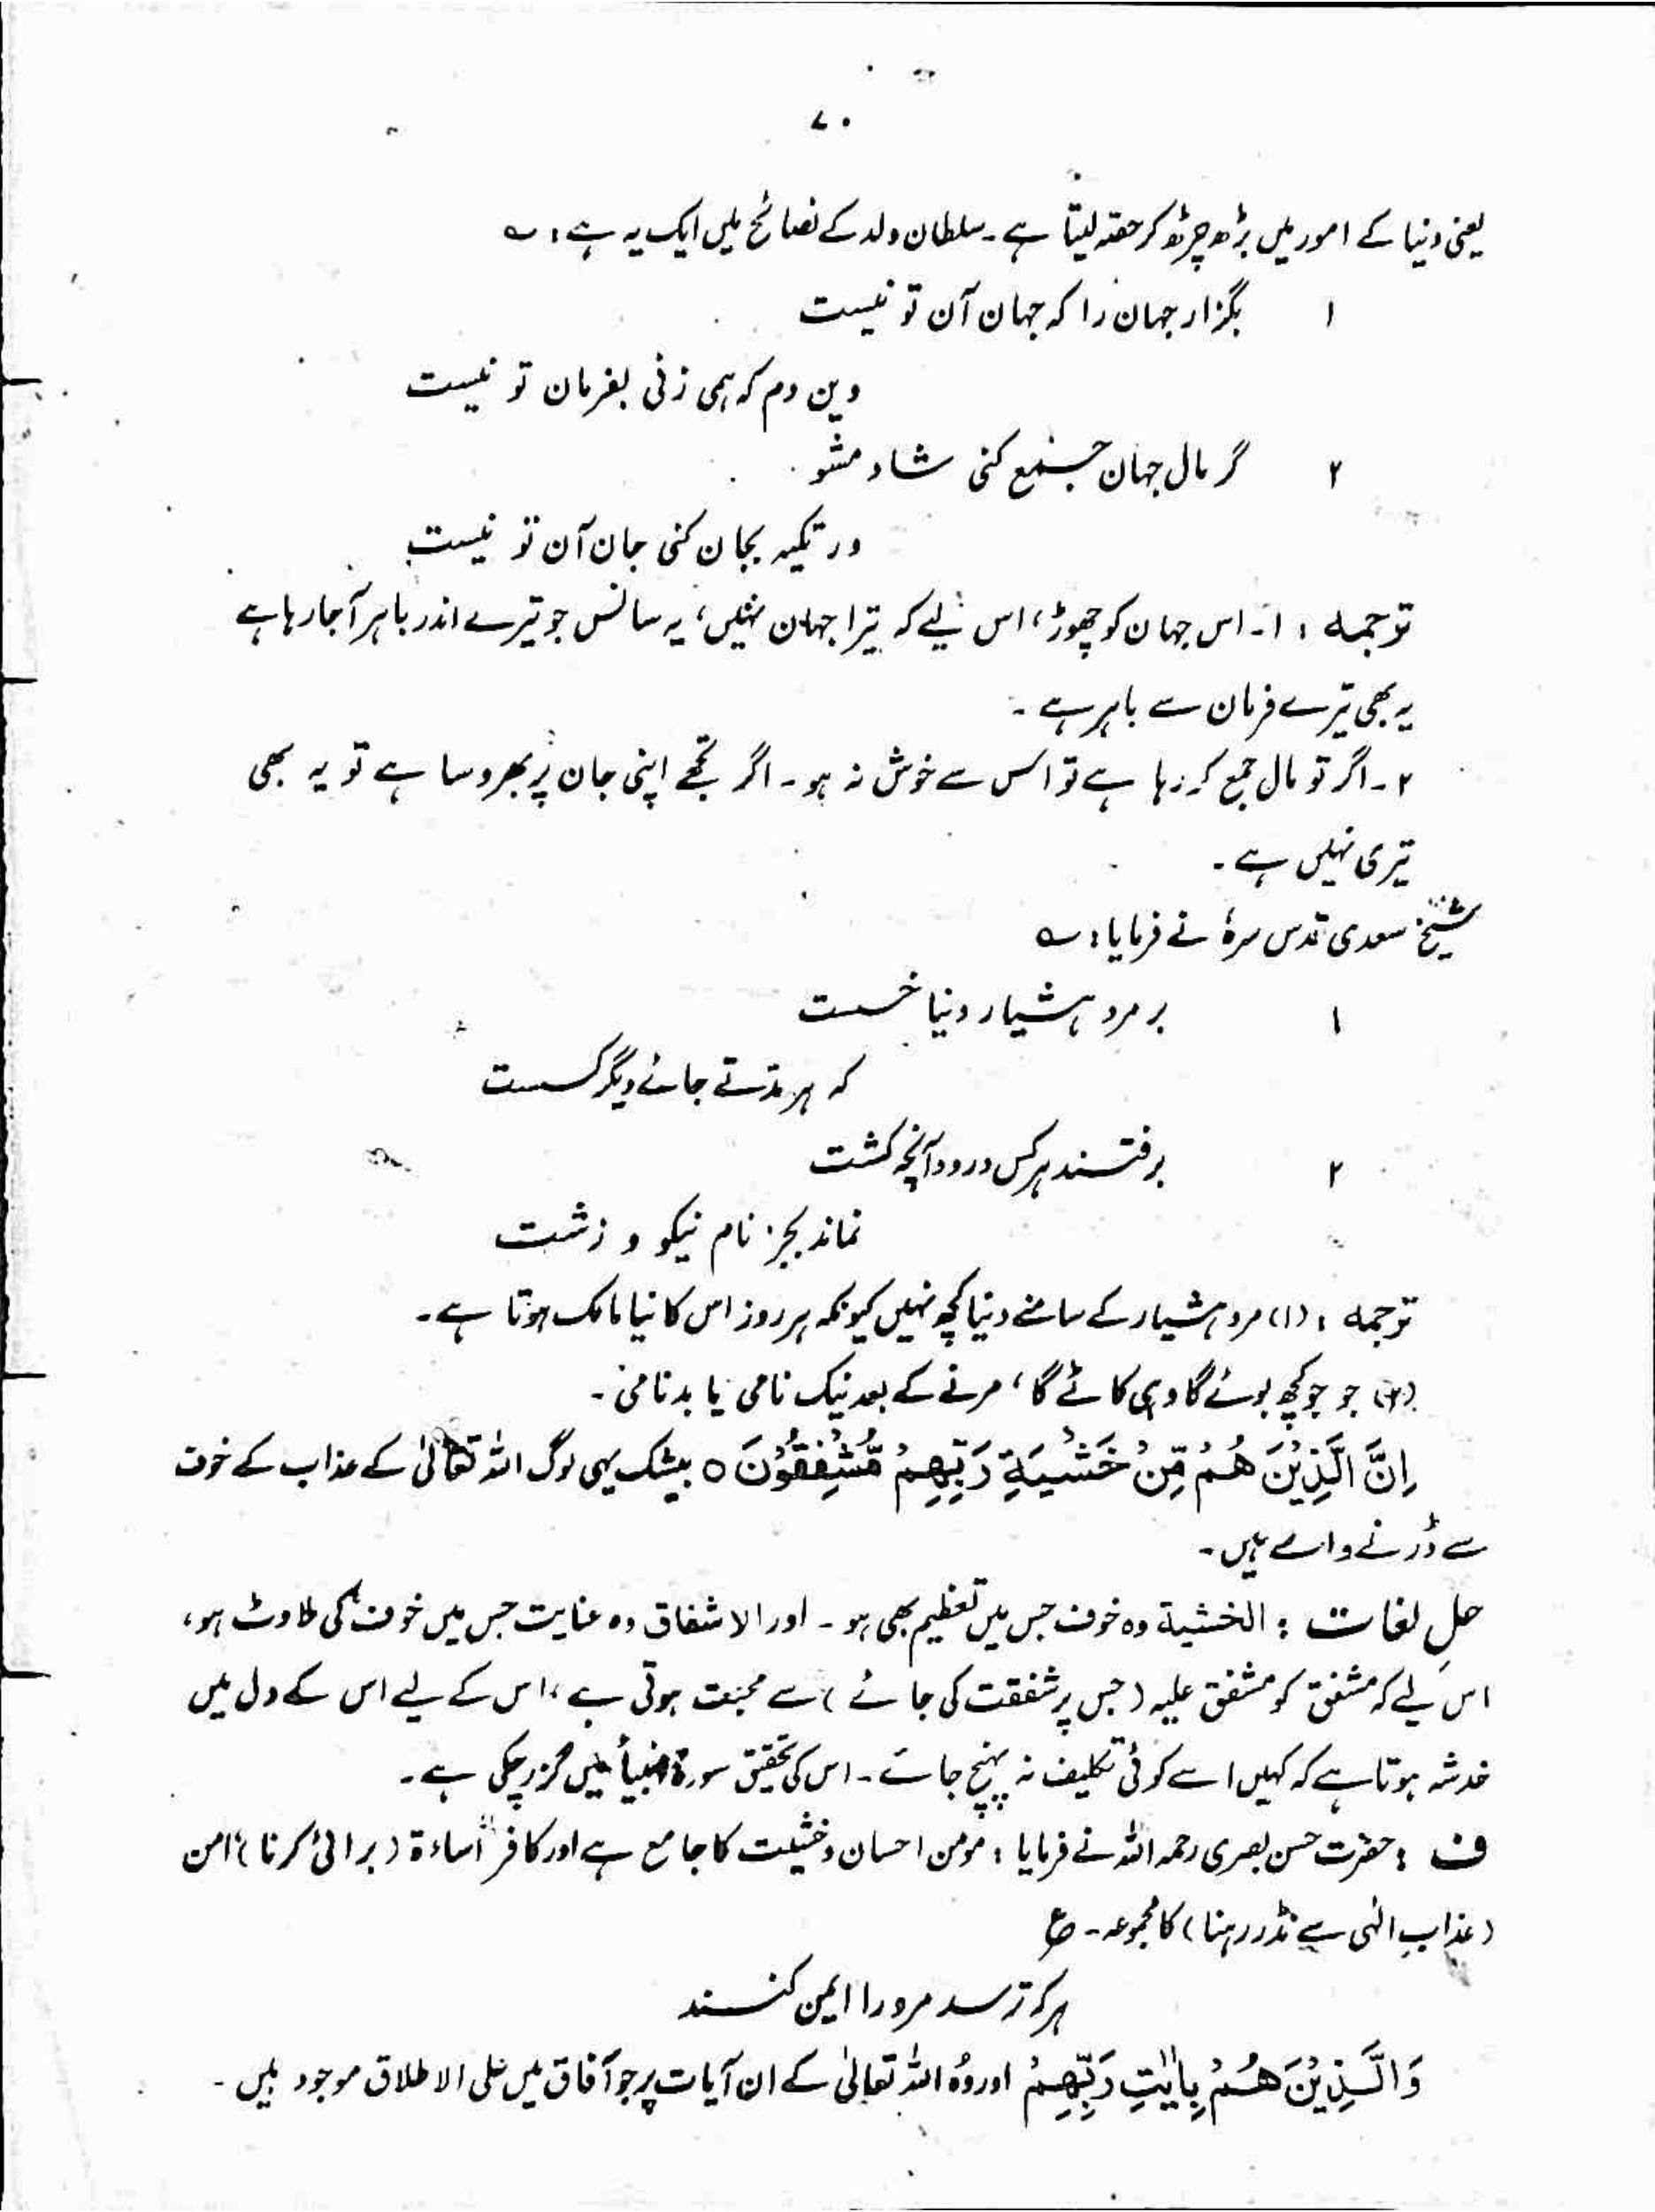 ۷۰
یعنی دنیا کے امور میں بڑھ چڑھ کر حصہ لیتا ہے ۔ سلطان ولد کے نصائح میں ایک یہ ہے : ؎
۱ بگزار جہان را کہ جہان آن تو نیست
وین دم کہ ہمی زنی بفرمان تو نیست
۲ گر مال جہان جمع کنی شاد مشو
ور تکیہ بجان کنی جان آن تو نیست
ترجمہ : ۱۔ اس جہان کو چھوڑ ، اس لیے کہ تیرا جہان نہیں ، یہ سانس جو تیرے اندر باہر آ جا رہا ہے
یہ بھی تیرے فرمان سے باہر ہے ۔
۲۔ اگر تو مال جمع کر رہا ہے تو اس سے خوش نہ ہو ۔ اگر تجھے اپنی جان پر بھروسا ہے تو یہ بھی
تیری نہیں ہے ۔
شیخ سعدی قدس سرہٗ نے فرمایا : ؎
۱ بر مرد ہشیار دنیا خسست
کہ ہر مدتے جائے دیگر کسست
۲ برفتند ہر کس درود آنچہ کشت
نماند بجز نام نیکو و زشت
ترجمہ : (۱) مرد ہشیار کے سامنے دنیا کچھ نہیں کیونکہ ہر روز اس کا نیا مالک ہوتا ہے ۔
(۲) جو جو کچھ بوئے گا وہی کاٹے گا ، مرنے کے بعد نیک نامی یا بدنامی ۔
اِنَّ الَّذِیْنَ ھُمْ مِّنْ خَشْیَةِ رَبِّھِمْ مُّشْفِقُوْنَ ○ بیشک یہی لوگ اللہ تعالیٰ کے عذاب کے خوف
سے ڈرنے والے ہیں ۔
حلِ لغات : الخشیة وہ خوف جس میں تعظیم بھی ہو ۔ اور الاشفاق وہ عنایت جس میں خوف کی ملاوٹ ہو ،
اس لیے کہ مشفق کو مشفق علیہ ( جس پر شفقت کی جائے ) سے محبت ہوتی ہے ، اس کے لیے اس کے دل میں
خدشہ ہوتا ہے کہ کہیں اسے کوئی تکلیف نہ پہنچ جائے ۔ اس کی تحقیق سورۃ انبیاء میں گزر چکی ہے ۔
ف : حضرت حسن بصری رحمہ اللہ نے فرمایا : مومن احسان و خشیت کا جامع ہے اور کافر اساءة ( برائی کرنا ) امن
( عذابِ الٰہی سے نڈر رہنا ) کا مجموعہ ۔ ؏
ہر کہ ترسد مرو را ایمن کنند
وَالَّذِیْنَ ھُمْ بِاٰیٰتِ رَبِّھِمْ اور وُہ اللہ تعالیٰ کے ان آیات پر جو آفاق میں علی الاطلاق موجود ہیں ۔